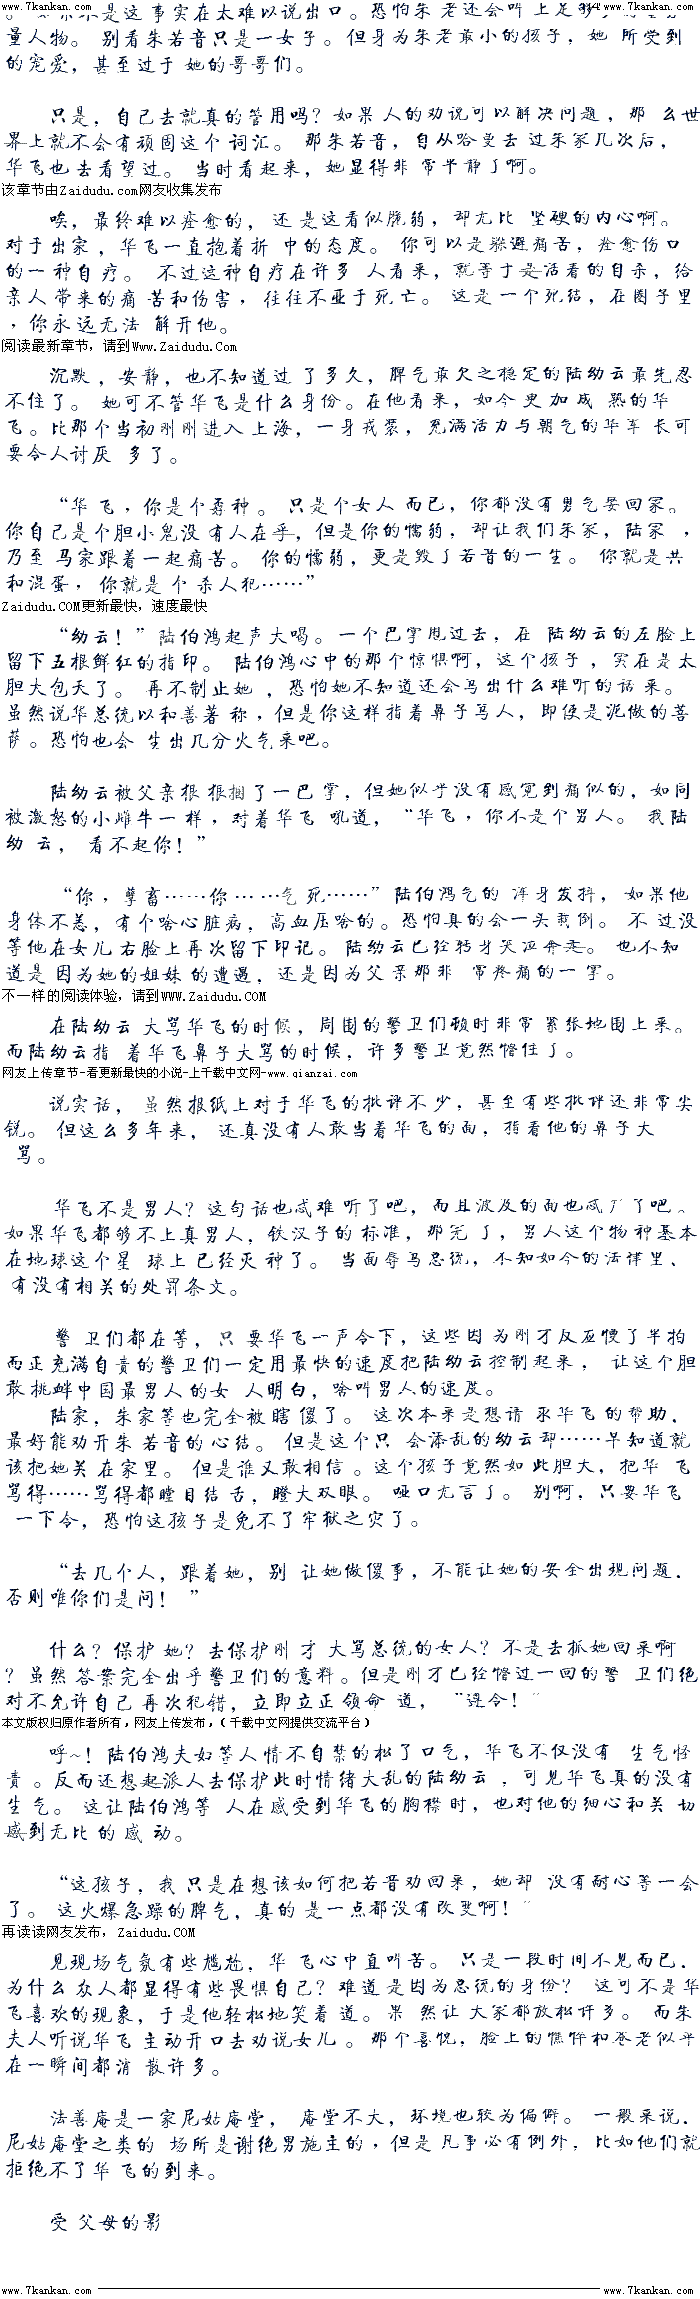 www.7kankan.com www.7kankan.com
量人物。 别看朱若音只是一女子。但身为朱老最小的孩子，她 所受到
的宠爱，甚至过于 她的哥哥们。
只是，自己去就真的管用吗？如果 人的劝说可以解决问题，那 么世
界上就不会有顽固这个 词汇。 那朱若音，自从哈曼去 过朱家几次后，
华飞也去看望过。 当时看起来，她显得非 常平静了啊。
该章节由Zaidudu.com网友收集发布
唉，最终难以痊愈的， 还 是这看似脆弱，却尤比 坚硬的内心啊。
对于出家，华飞一直抱着折 中的态度。 你可以是躲避痛苦，痊愈伤口
的一种自疗。 不过这种自疗在许多 人看来，就等于是活着的自杀，给
亲人带来的痛 苦和伤害，往往不亚于死亡。 这是一个死结，在圈子里
，你永远无法 解开他。
阅读最新章节，请到Www.Zaidudu.Com
沉默，安静，也不知道过 了多久，脾气最欠乏稳定的陆幼云最先忍
不住了。 她可不管华飞是什么身份。在他看来，如今 更 加 成 熟的华
飞。比那个当初刚刚进入 上海，一身戎装，充满活力与朝气的华军 长可
要令人讨厌 多了。
“华 飞，你是个孬种。 只是个女人 而已，你都没有勇气娶回家。
你自己是个胆小鬼没 有人在乎，但是你的懦弱，却让我们朱家，陆家 ，
乃至 马家跟着一起痛苦。 你的懦弱，更是毁了若音的一生。 你就是共
和混蛋，你就是 个 杀人犯……”
Zaidudu.COM更新最快，速度最快
“幼云！”陆伯鸿起声大喝。一个巴掌甩过去，在 陆幼云的左脸上
留下五根鲜红的指印。 陆伯鸿心中的那个惊惧啊，这个孩子，实在是太
胆大包天了。 再不制止她 ，恐怕她不知道还会骂出什么难听的话 来。
虽然说华总统以和善著 称，但是你这样指着鼻子骂人，即使是泥做的菩
萨。恐怕也会 生出几分火气来吧。
陆幼云被父亲狠 狠掴了一巴 掌，但她似乎没有感觉到痛似的，如同
被激怒的小雌牛一 样，对着华飞 吼道，“华飞，你不是个男人。 我陆
幼 云， 看不起你！”
“你，孽畜……你 … …气 死……”陆伯鸿气的 浑身发抖， 如果他
身体不恙，有个啥心脏病，高血压啥的。恐怕真的会一头栽倒。 不 过没
等他在女儿右脸上再次留下印记。 陆幼云已经转身哭泣奔走。 也不知
道是 因为她的姐妹 的遭遇，还是因为父 亲那非 常疼痛的一 掌。
不一样的阅读体验，请到WWW.Zaidudu.COM
在陆幼云 大骂华飞的时候，周围的警卫们顿时非常 紧张地围上来。
而陆幼云指 着华飞鼻子大骂的时候，许多警卫竟然懵住了。
网友上传章节-看更新最快的小说-上千载中文网-www.qianzai.com
说实话， 虽然报纸上对于华飞的批评不少，甚至有些批评还非常尖
锐。 但这么多年来， 还真没有人敢当着华飞的面，指着他的鼻子大
骂。
华飞不是男人？这句话也忒难 听了吧，而且波及的面也忒广了吧。
如果华飞都够不上真男人，铁汉子的 标准，那完 了，男人这个物 种基本
在地球这个星 球上 已经灭 种了。 当面辱骂总统，不知如今的法律里，
有没有相关的处罚条文。
警 卫们都在等，只 要华飞一声令下，这些因 为刚才反应慢了半拍
而正充满自责的警卫们一定用最快的速度把陆幼云控制起来， 让这个胆
敢挑衅中国最男人的女 人明白，啥叫男人的速度。
陆家，朱家等也完全被 瞎 傻了。 这次本来是想请 求华飞的帮助，
最好能劝开朱 若音的 心结。 但是这个只 会添乱的幼云却……早知道就
该把她关 在家里。 但是谁又敢相信 。这个孩子竟然如 此胆大，把华 飞
骂得……骂得都瞠目结 舌，瞪大双眼。 哑口无言了。 别啊，只要华飞
一下令，恐怕这孩子是免不了牢狱之灾了。
“去几个人，跟着她，别 让她做傻事，不能让她的安全出现问题，
否则唯你们是问！ ”
什么？保护 她？去保护刚 才 大骂总统的女人？不是去抓她回来啊
？虽然 答案完全出乎警卫们的意料。但是刚才已经懵过一回的警 卫们绝
对不允许自己 再次犯错，立即立正 领命 道， “遵令！”
本文版权归原作者所有，网友上传发布，（千载中文网提供交流平台）
呼~！陆伯鸿夫妇等人情不自禁的松了口气，华飞不仅没有 生气怪
责。反而还想起派人去保护此时情绪大乱的陆幼云 ，可见华飞真的没有
生 气。 这让陆伯鸿等 人在感受到华飞的胸襟 时，也对他的细心和关 切
感到无比 的 感 动。
“这孩子，我 只是在想该如何把若音劝回来，她却 没有耐心等一会
了。 这火爆急躁的脾气，真的 是一点都没有改变啊！”
再读读网友发布，Zaidudu.COM
见现场气氛有些尴尬，华 飞心中直叫苦。 只是一段时间不见而已，
为什么 众人都显得有些畏惧自己？难道 是因为总统的身份？ 这可不是华
飞喜欢的现象，于是他轻松地笑着 道。果 然让 大家都放松许多。 而朱
夫人听说华飞 主动开口去劝说女儿 。那个喜悦，脸上的憔悴和苍老似乎
在一瞬间都消 散许多。
法善庵是一家尼姑庵堂， 庵堂不大，环境也较为偏僻。 一般来说，
尼姑庵堂之类的 场所是谢绝男施主的，但是 凡事必有例外，比如他们就
拒绝不了华 飞的到来。
受 父母的影
www.7kankan.com www.7kankan.com